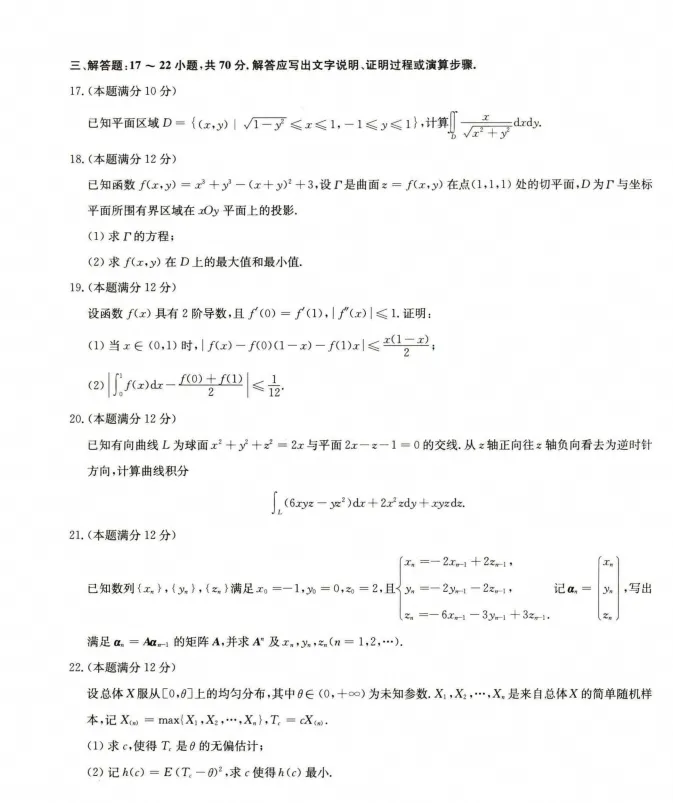 三、解答题:17 ～ 22 小题,共 70 分.解答应写出文字说明、证明过程或演算步骤.
17.(本题满分 10 分)
已知平面区域 D = {(x,y) | √(1-y²) ≤ x ≤ 1, -1 ≤ y ≤ 1},计算 ∬_D x/√(x²+y²) dxdy.
18.(本题满分 12 分)
已知函数 f(x,y) = x³ + y³ - (x+y)² + 3,设 Γ 是曲面 z = f(x,y) 在点(1,1,1) 处的切平面,D 为 Γ 与坐标
平面所围有界区域在 xOy 平面上的投影.
(1) 求 Γ 的方程;
(2) 求 f(x,y) 在 D 上的最大值和最小值.
19.(本题满分 12 分)
设函数 f(x) 具有 2 阶导数,且 f′(0) = f′(1),|f″(x)| ≤ 1.证明:
(1) 当 x ∈ (0,1) 时,|f(x) - f(0)(1-x) - f(1)x| ≤ x(1-x)/2;
(2) |∫₀¹ f(x)dx - (f(0)+f(1))/2| ≤ 1/12.
20.(本题满分 12 分)
已知有向曲线 L 为球面 x² + y² + z² = 2x 与平面 2x - z - 1 = 0 的交线.从 z 轴正向往 z 轴负向看去为逆时针
方向,计算曲线积分
∫_L (6xyz - yz²)dx + 2x²zdy + xyzdz.
21.(本题满分 12 分)
已知数列{xₙ},{yₙ},{zₙ}满足 x₀ = -1,y₀ = 0,z₀ = 2,且 { xₙ = -2xₙ₋₁ + 2zₙ₋₁, yₙ = -2yₙ₋₁ - 2zₙ₋₁, zₙ = -6xₙ₋₁ - 3yₙ₋₁ + 3zₙ₋₁. 记 αₙ = (xₙ yₙ zₙ),写出
满足 αₙ = Aαₙ₋₁ 的矩阵 A,并求 Aⁿ 及 xₙ,yₙ,zₙ(n = 1,2,⋯).
22.(本题满分 12 分)
设总体 X 服从[0,θ]上的均匀分布,其中 θ ∈ (0,+∞) 为未知参数. X₁,X₂,⋯,Xₙ 是来自总体 X 的简单随机样
本,记 X₍ₙ₎ = max{X₁,X₂,⋯,Xₙ},T_c = cX₍ₙ₎.
(1) 求 c,使得 T_c 是 θ 的无偏估计;
(2) 记 h(c) = E(T_c - θ)²,求 c 使得 h(c) 最小.